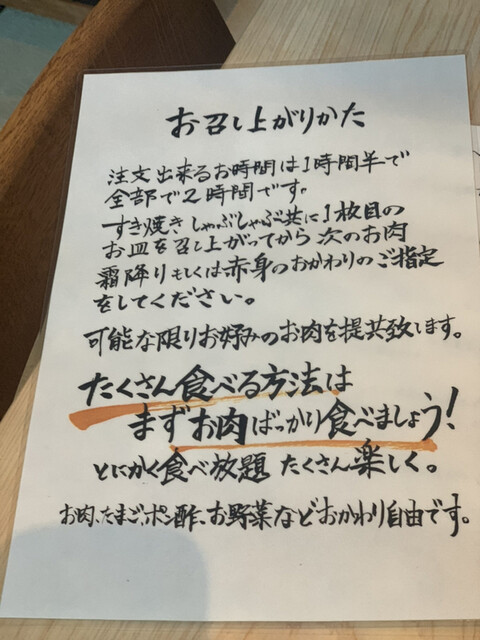 お召し上がりかた
注文出来るお時間は1時間半で
全部で2時間です。
すき焼きしゃぶしゃぶ共に1枚目の
お皿を召し上がってから次のお肉
霜降りもしくは赤身のおかわりのご指定
をしてください。
可能な限りお好みのお肉を提共致します。
たくさん食べる方法は
まずお肉ばっかり食べましょう!
とにかく食べ放題たくさん楽しく。
お肉、たまご、ポン酢、お野菜などおかわり自由です。